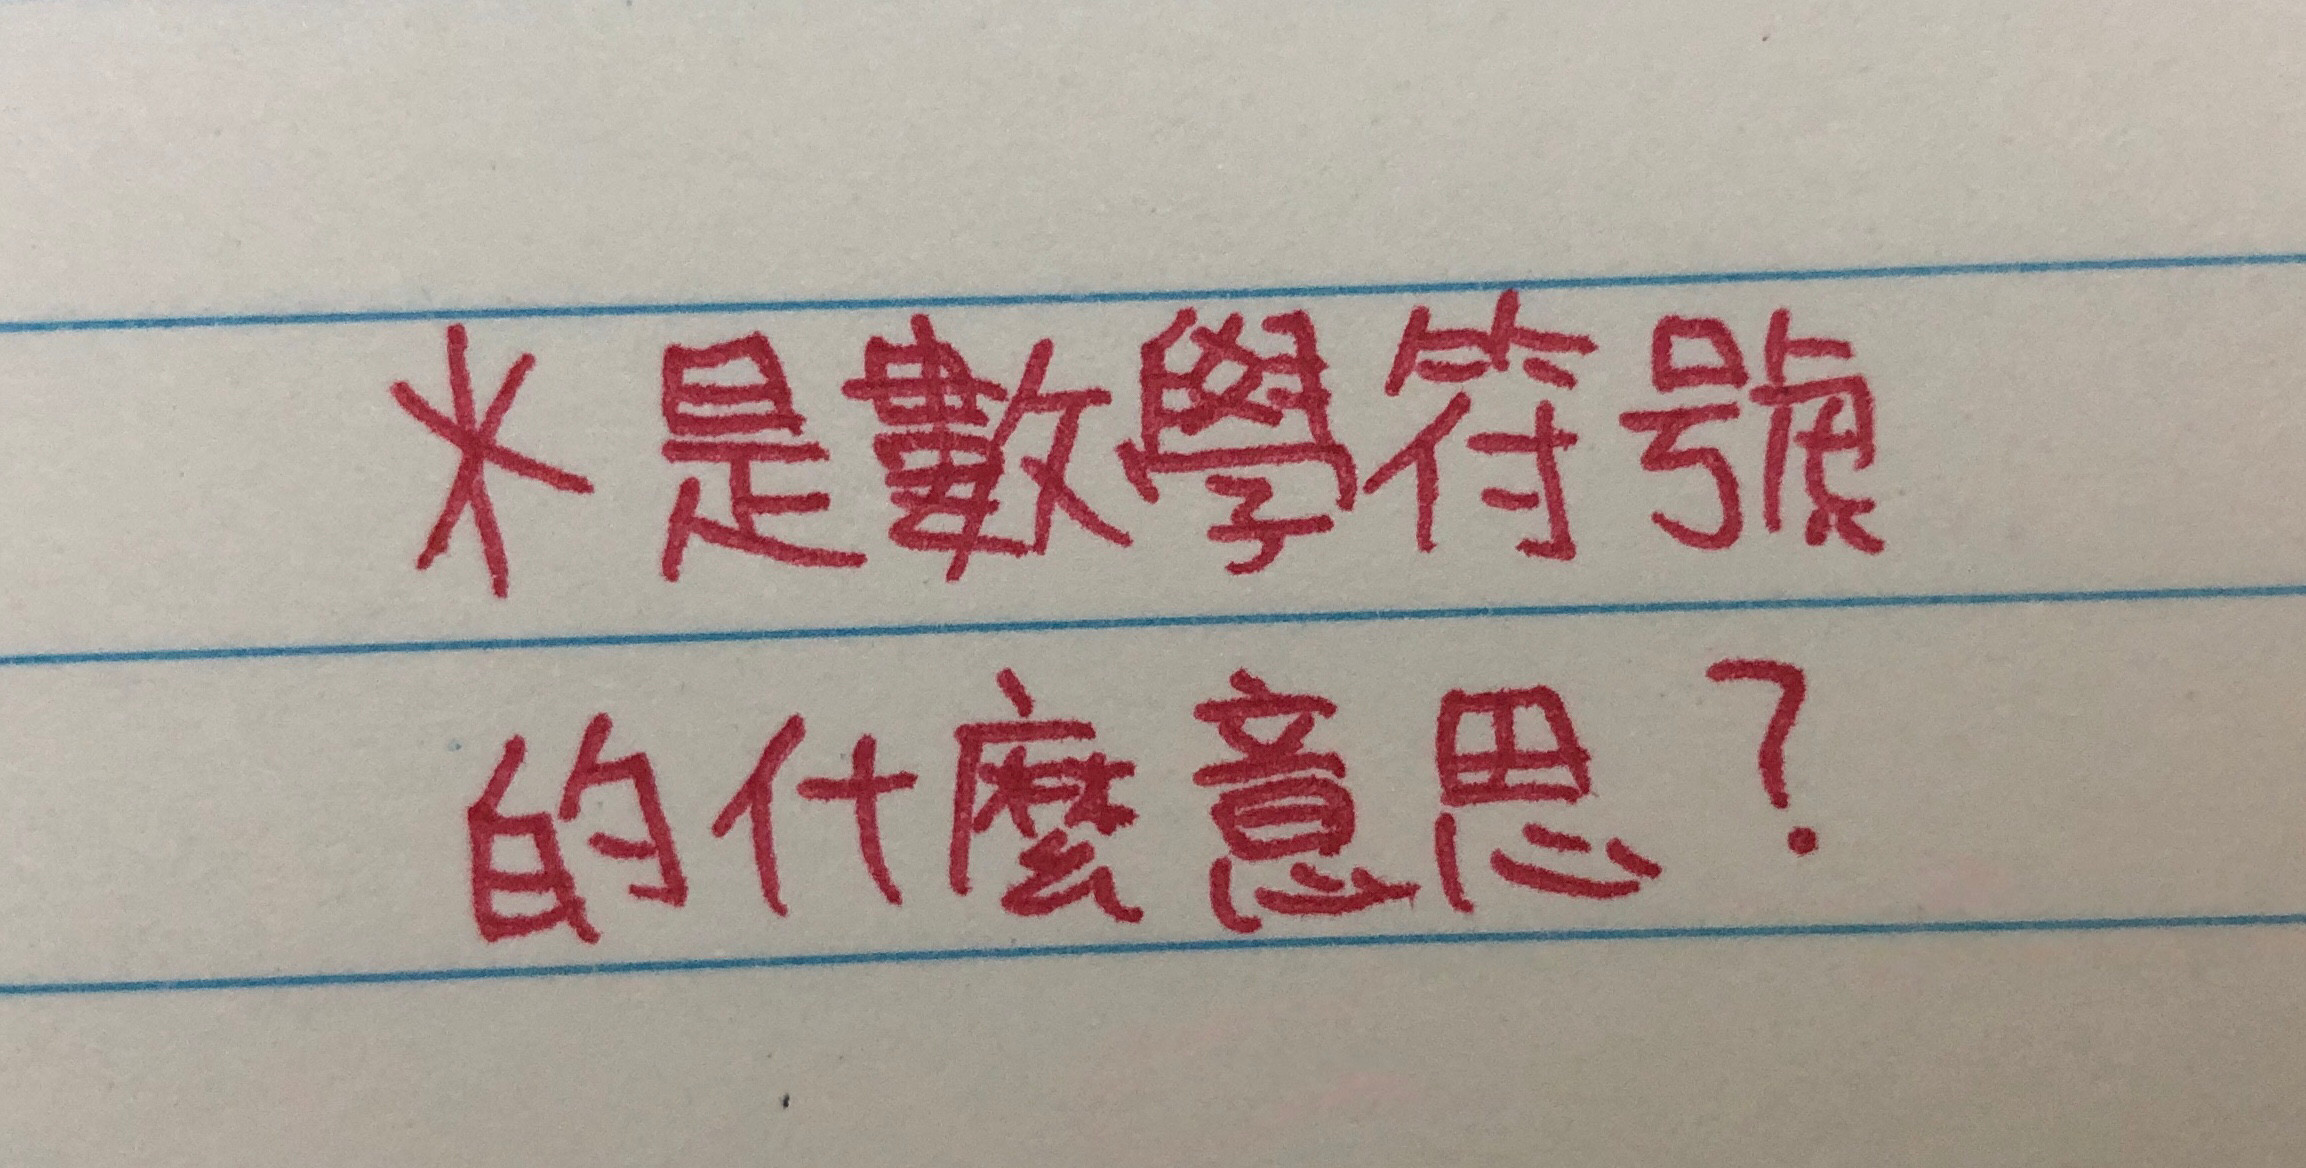 *是數學符號
的什麼意思?